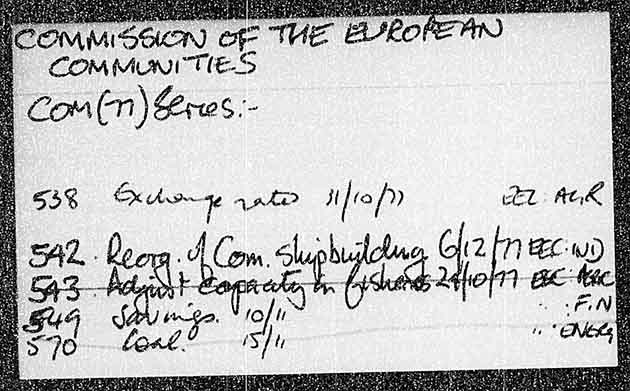 COMMISSION OF THE EUROPEAN
COMMUNITIES
COM(77) Series:-
538 Exchange rates 31/10/77 EEC AGR
542. Reorg. of Com. Shipbuilding 6/12/77 EEC:IND
543. Adjust capacity in fisheries 24/10/77 EEC
549 Savings. 10/11 " : FIN
570 Coal. 15/11 " : ENERG